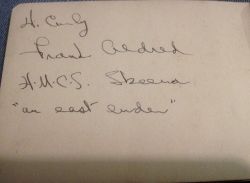 H. Curly
Frank Aldred
H.M.C.S. Skeena
"an east ender"